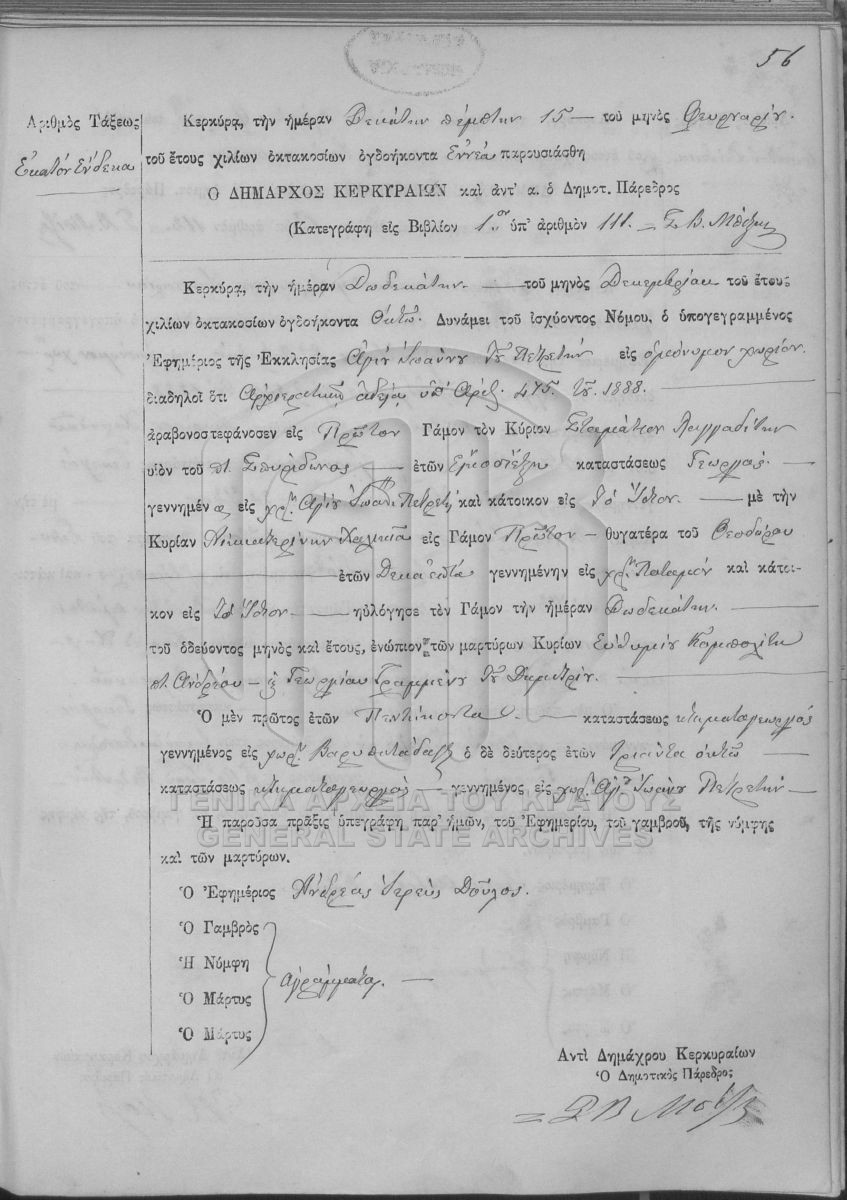 56
Ἀριθμὸς Τάξεως
Ἑκατὸν Ἕνδεκα
Κερκύρᾳ, τὴν ἡμέραν Δεκάτην πέμπτην 15 — τοῦ μηνὸς Φευρουαρίου.
τοῦ ἔτους χιλίων ὀκτακοσίων ὀγδοήκοντα Ἐννέα παρουσιάσθη
Ο ΔΗΜΑΡΧΟΣ ΚΕΡΚΥΡΑΙΩΝ καὶ ἀντ' α. ὁ Δημοτ. Πάρεδρος
(Κατεγράφη εἰς Βιβλίον 1ον ὑπ' ἀριθμὸν 111. —
Κερκύρᾳ, τὴν ἡμέραν Δωδεκάτην — τοῦ μηνὸς Δεκεμβρίου τοῦ ἔτους
χιλίων ὀκτακοσίων ὀγδοήκοντα Ὀκτὼ. Δυνάμει τοῦ ἰσχύοντος Νόμου, ὁ ὑπογεγραμμένος
Ἐφημέριος τῆς Ἐκκλησίας Ἁγίου Ἰωάννου τοῦ Πετρετὴ εἰς ὁμόνυμον χωρίον.
διαδηλοῖ ὅτι Ἀρχιερατικῇ ἀδείᾳ ὑπ' Ἀριθ. 475. τοῦ 1888. —
ἀραβονοστεφάνοσεν εἰς Πρῶτον Γάμον τὸν Κύριον Σταμάτιον Λαγγαδίτην
υἱὸν τοῦ π. Σπυρίδωνος — ἐτῶν Εἰκοσιέξη καταστάσεως Γεωργὸς. —
γεννημένος εἰς χωρ. Ἁγίου Ἰωάν. Πετρετὴ καὶ κάτοικον εἰς Τὸ Ἴδιον. — μὲ τὴν
Κυρίαν Αἰκατερίνην Χαλικιᾶ εἰς Γάμον Πρῶτον — θυγατέρα τοῦ Θεοδώρου
— ἐτῶν Δεκαεπτὰ γεννημένην εἰς χωρ. Ποταμὸν καὶ κάτοι-
κον εἰς Τὸ Ἴδιον — ηὐλόγησε τὸν Γάμον τὴν ἡμέραν Δωδεκάτην. —
τοῦ ὁδεύοντος μηνὸς καὶ ἔτους, ἐνώπιον τῶν μαρτύρων Κυρίων Εὐθυμίου Καμπολίτη
π. Ἀνδρέου — καὶ Γεωργίου Γραμμένου τοῦ Δημητρίου. —
Ὁ μὲν πρῶτος ἐτῶν Πεντήκοντα — καταστάσεως κτηματογεωργὸς
γεννημένος εἰς χωρ. Βαρυπατάδαις ὁ δὲ δεύτερος ἐτῶν Τριάντα ὀκτὼ —
καταστάσεως κτηματογεωργὸς — γεννημένος εἰς χωρ. Ἁγ. Ἰωάνου Πετρετὴ —
ΓΕΝΙΚΑ ΑΡΧΕΙΑ ΤΟΥ ΚΡΑΤΟΥΣ
Ἡ παροῦσα πρᾶξις ὑπεγράφη παρ' ἡμῶν, τοῦ Ἐφημερίου, τοῦ γαμβροῦ, τῆς νύμφης
GENERAL STATE ARCHIVES
καὶ τῶν μαρτύρων.
Ὁ Ἐφημέριος Ἀνδρέας Ἱερεὺς Δοῦλος.
Ὁ Γαμβρὸς
Ἡ Νύμφη
ἀγράμματοι. —
Ὁ Μάρτυς
Ὁ Μάρτυς
Ἀντὶ Δημάχρου Κερκυραίων
Ὁ Δημοτικὸς Πάρεδρος